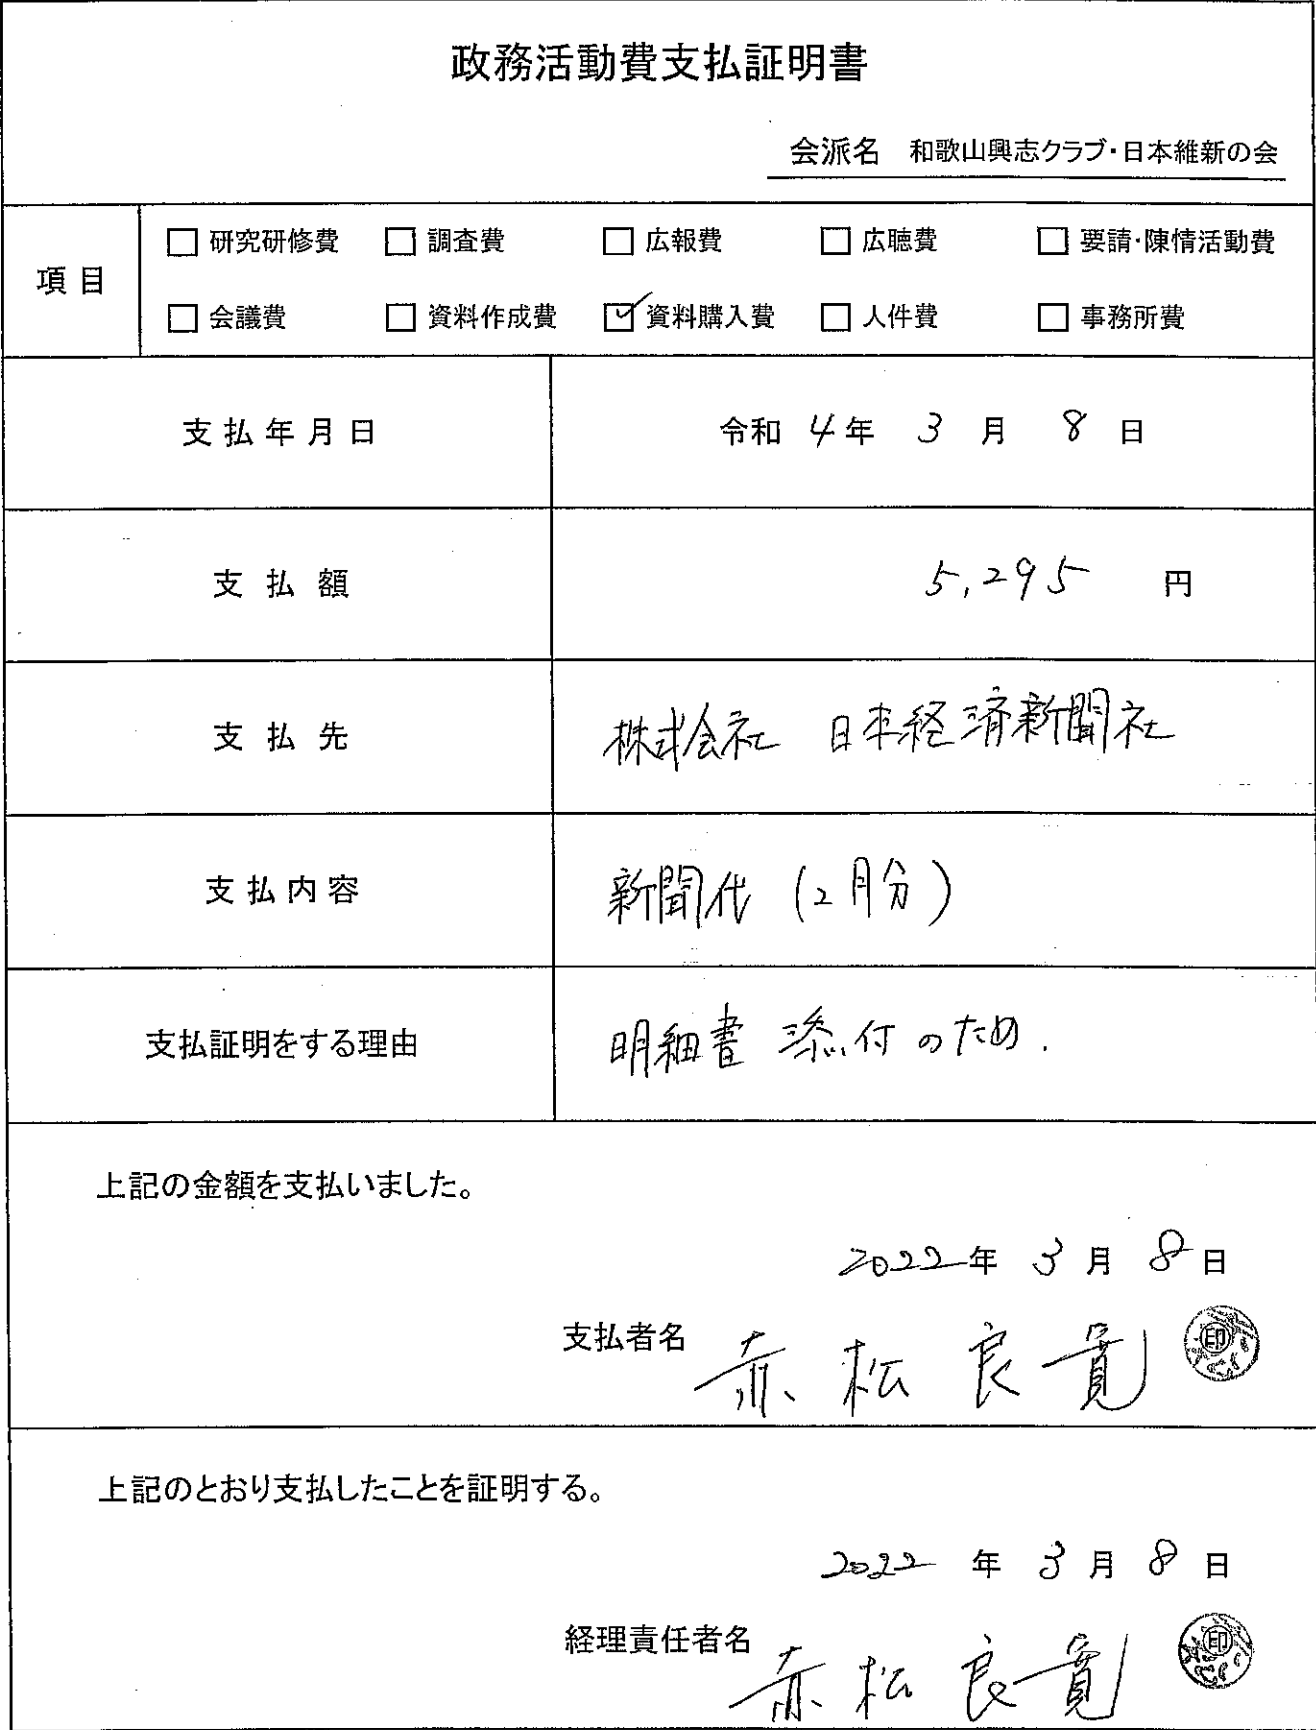 政務活動費支払証明書
会派名 和歌山興志クラブ・日本維新の会
項目
□ 研究研修費 □ 調査費 □ 広報費 □ 広聴費 □ 要請・陳情活動費
□ 会議費 □ 資料作成費 ☑ 資料購入費 □ 人件費 □ 事務所費
支払年月日 令和 4年 3月 8日
支払額 5,295 円
支払先 株式会社 日本経済新聞社
支払内容 新聞代 (2月分)
支払証明をする理由 明細書 添付のため.
上記の金額を支払いました。
2022年 3月 8日
支払者名 赤松良寛 印
上記のとおり支払したことを証明する。
2022年 3月 8日
経理責任者名 赤松良寛 印